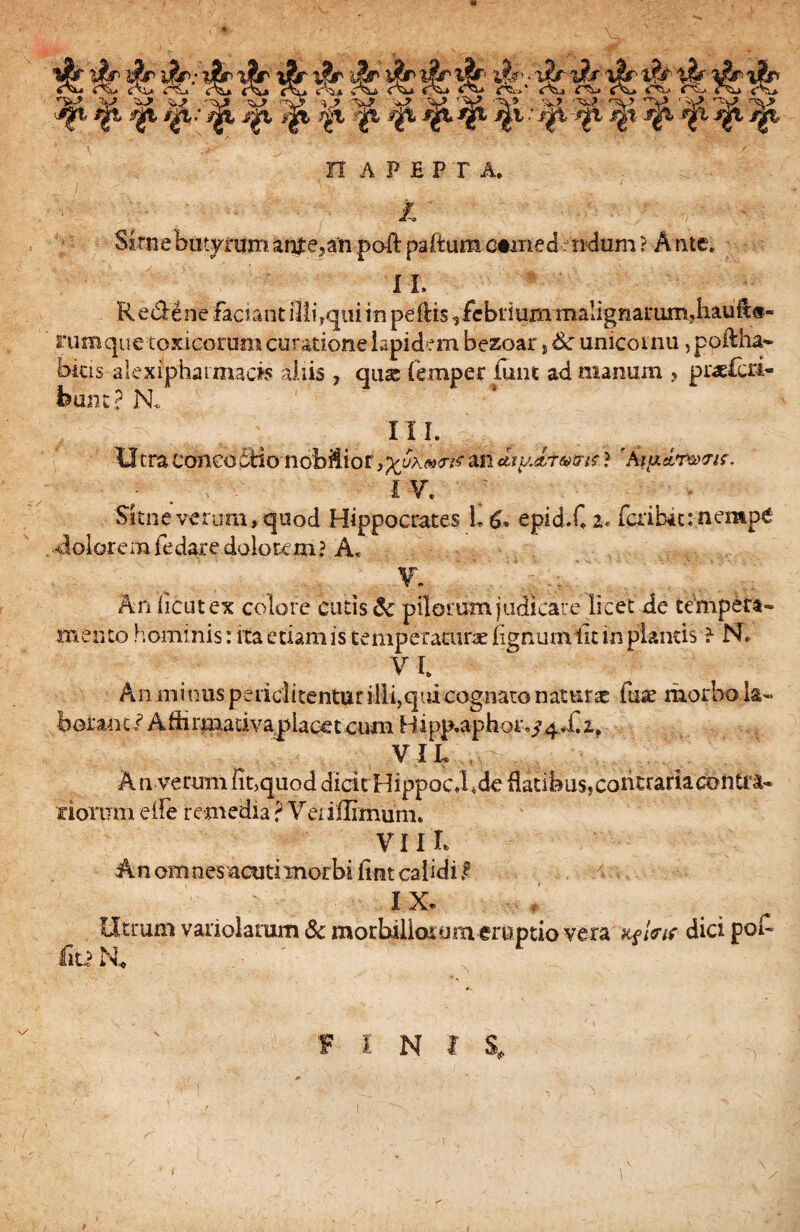 ΠΑΡΕΡΓΑ.
I.
Sitne butyrum ante, an post pastum comedendum? Ante.
II.
Rectène faciant illi, qui in pestis, febrium malignarum, hausto-
rumque toxicorum curatione lapidem bezoar, & unicornu, postha-
bitis alexipharmacis aliis, quæ semper sunt ad manum, præscri-
bunt? N.
III.
Utra concoctio nobilior, χύλωσις an αἱμάτωσις? Ἁιμάτωσις.
IV.
Sitne verum, quod Hippocrates l. 6. epid. s. 2. scribit: nempè
dolorem sedare dolorem? A.
V.
An sicut ex colore cutis & pilorum judicare licet de tempera-
mento hominis: ita etiam is temperaturæ signum sit in plantis? N.
VI.
An minus periclitentur illi, qui cognato naturæ suæ morbo la-
borant? Affirmativa placet cum Hipp. aphor. 34. s. 2.
VII.
An verum sit, quod dicit Hippoc. l. de flatibus, contraria contra-
riorum esse remedia? Verissimum.
VIII.
An omnes acuti morbi sint calidi?
IX.
Utrum variolarum & morbillorum eruptio vera κρίσις dici pos-
sit? N.
FINIS.